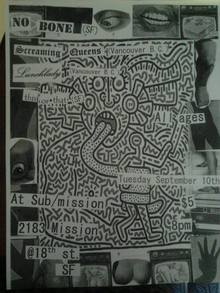 NO BONE (SF)
Screaming Queens (Vancouver B.C.)
Lunchlady (Vancouver B.C.)
All ages
Tuesday September 10th
At Sub/mission $5
2183 Mission 8pm
@18th st.
SF